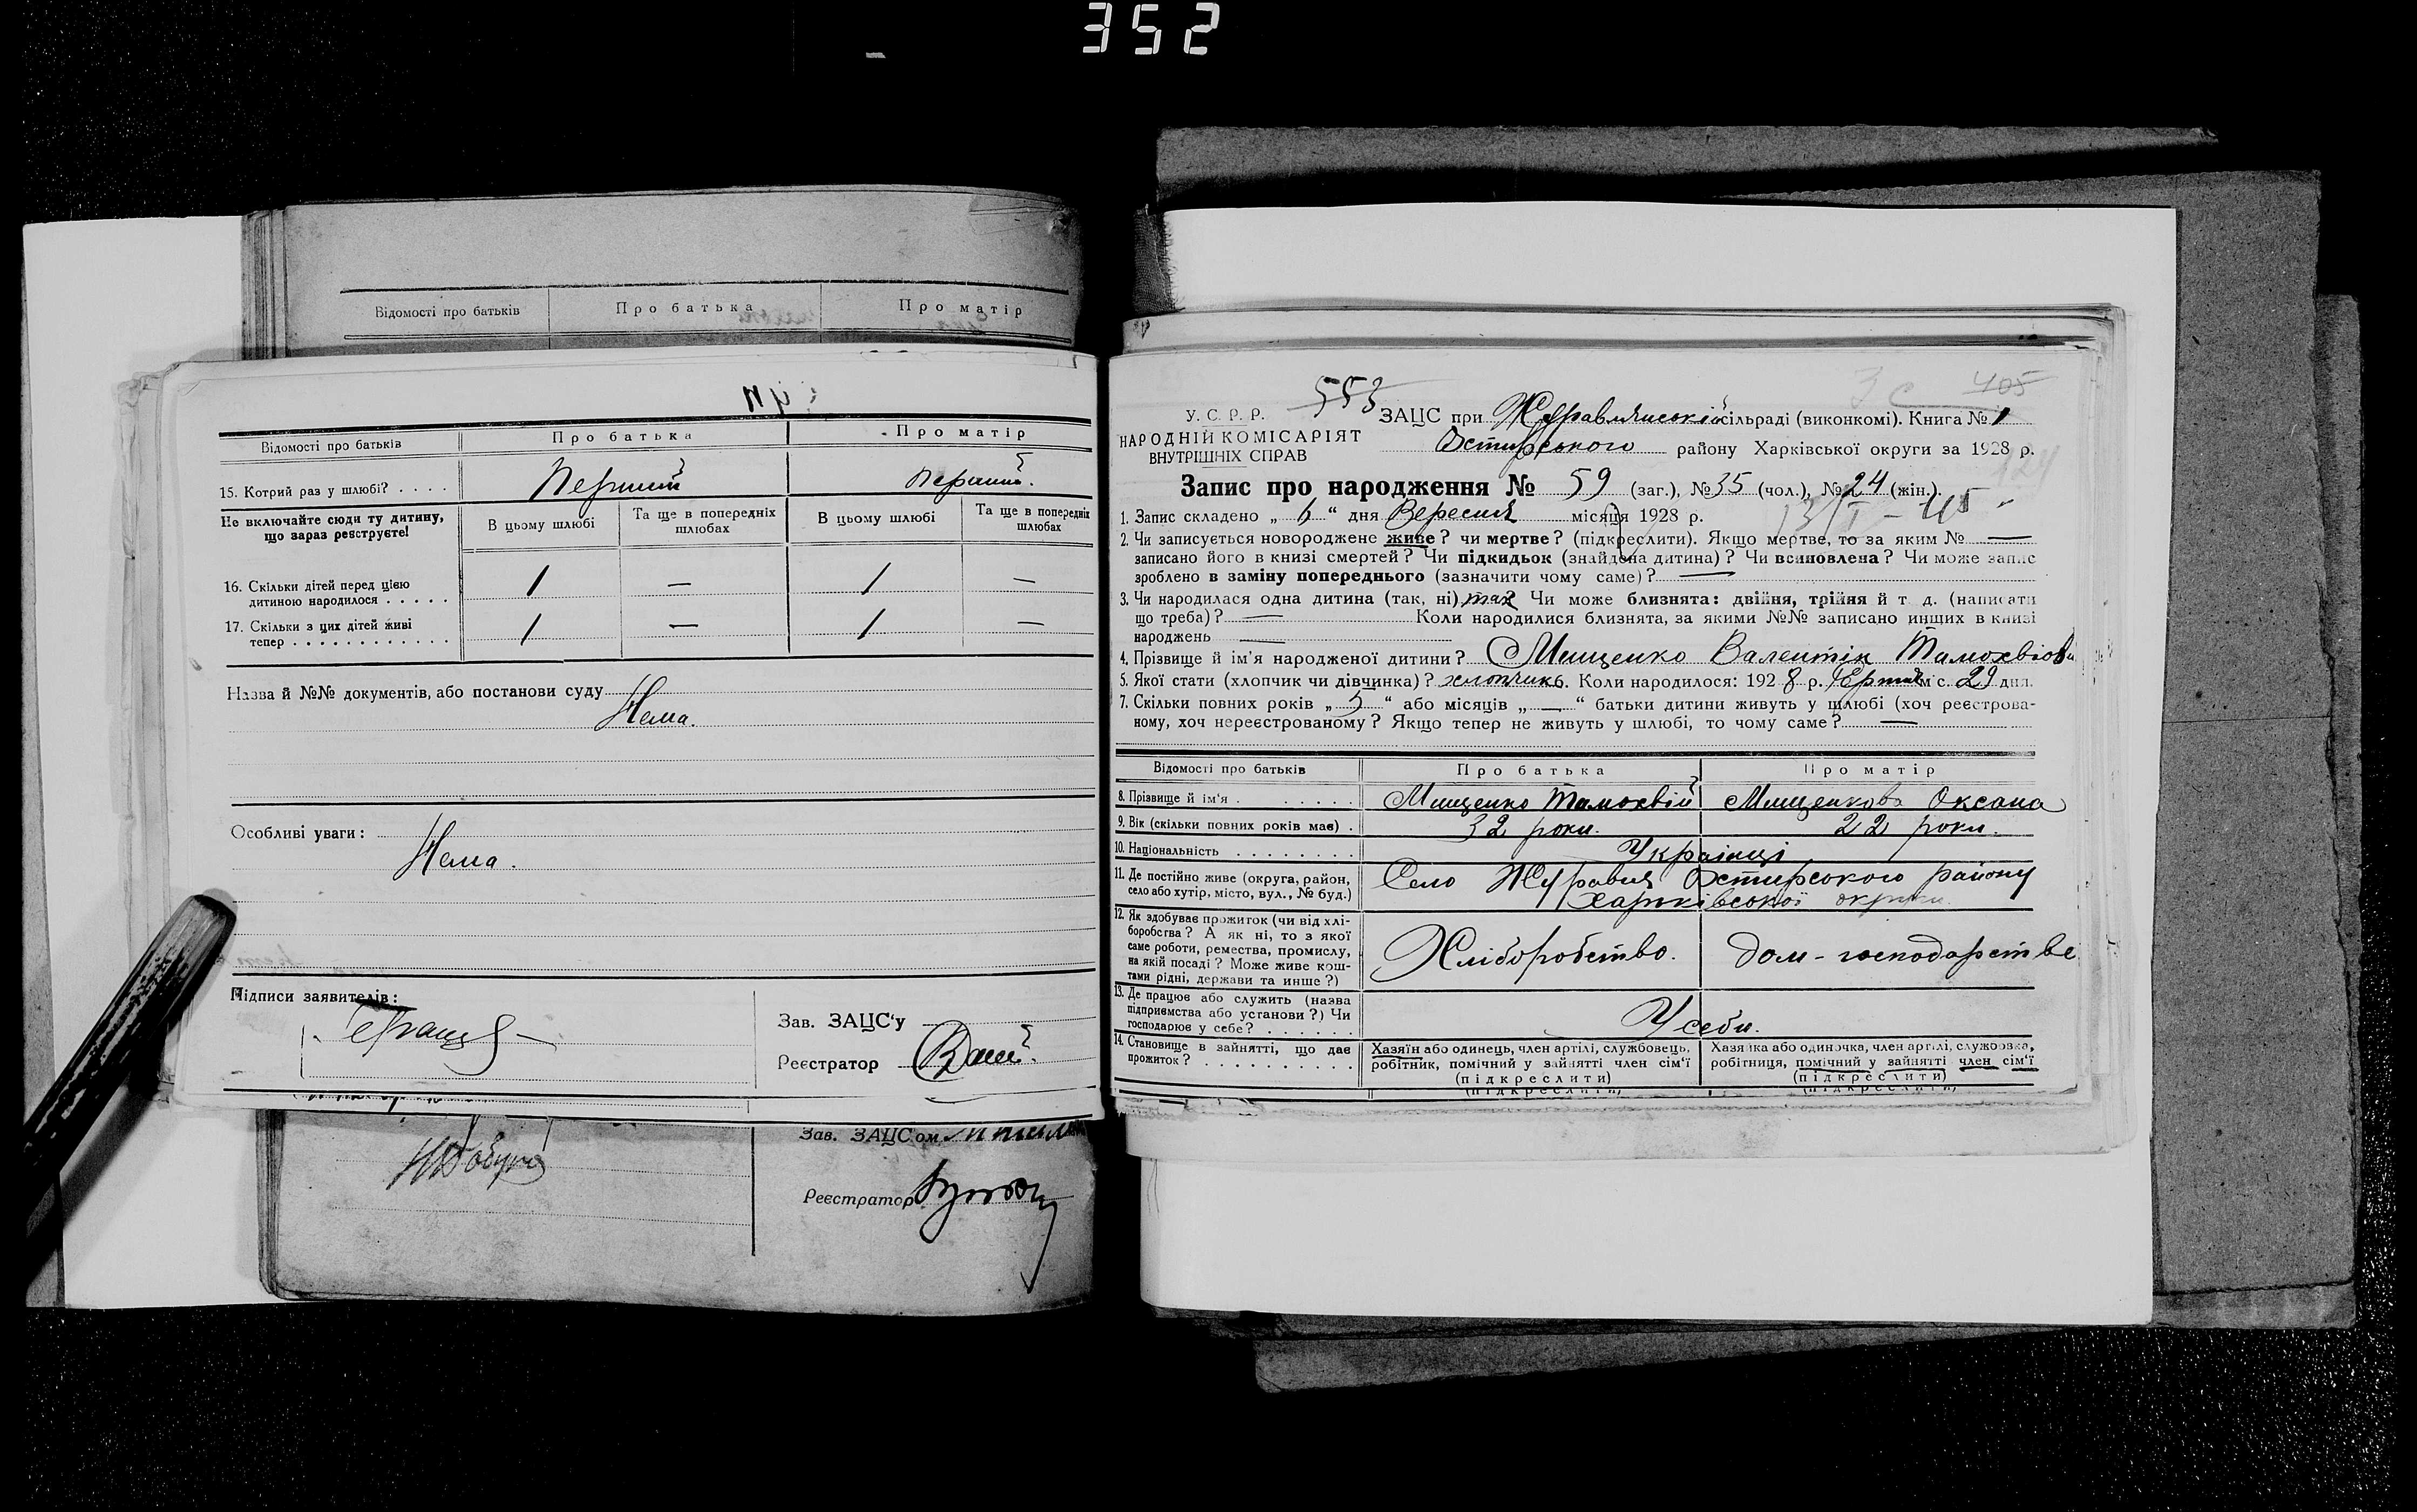 352
Відомості про батьків Про батька Про матір
Відомості про батьків Про батька Про матір
15. Котрий раз у шлюбі? . . . . Перший Перший.
Не включайте сюди ту дитину, що зараз реєструєте! В цьому шлюбі Та ще в попередніх шлюбах В цьому шлюбі Та ще в попередніх шлюбах
16. Скільки дітей перед цією
дитиною народилося . . . . . 1 — 1 —
17. Скільки з цих дітей живі
тепер . . . . . . . . . . . . 1 — 1 —
Назва й №№ документів, або постанови суду
Нема.
Особливі уваги:
Нема.
Підписи заявителів:
Зав. ЗАЦС'у
Реєстратор
Зав. ЗАЦС'ом
Реєстратор
553 405
У. С. Р. Р.
НАРОДНІЙ КОМІСАРІЯТ
ВНУТРІШНІХ СПРАВ
ЗАЦС при Журавлянській сільраді (виконкомі). Книга № 1
району Харківської округи за 1928 р.
Запис про народження № 59 (заг.), № 35 (чол.), № 24 (жін.).
1. Запис складено „ 6 “ дня Вересня місяця 1928 р.
2. Чи записується новороджене живе? чи мертве? (підкреслити). Якщо мертве, то за яким № —
записано його в книзі смертей? Чи підкидьок (знайдена дитина)? Чи всиновлена? Чи може запис
зроблено в заміну попереднього (зазначити чому саме)? —
3. Чи народилася одна дитина (так, ні) так Чи може близнята: двійня, трійня й т. д. (написати
що треба)? — Коли народилися близнята, за якими №№ записано инщих в книзі
народжень —
4. Прізвище й ім'я народженої дитини? Мищенко Валентін
5. Якої стати (хлопчик чи дівчинка)? хлопчик. Коли народилося: 1928 р. м-с. 29 дня.
7. Скільки повних років „ 5 “ або місяців „ — “ батьки дитини живуть у шлюбі (хоч реєстрова-
ному, хоч нереєстрованому? Якщо тепер не живуть у шлюбі, то чому саме? —
Відомості про батьків Про батька Про матір
8. Прізвище й ім'я . . . . . . Мищенко Тимохвій Мищенкова Оксана
9. Вік (скільки повних років має) . 32 роки. 22 роки.
10. Національність . . . . . . . . Українці
11. Де постійно живе (округа, район,
село або хутір, місто, вул., № буд.) Село Журавля району
Харьківської округи
12. Як здобуває прожиток (чи від хлі-
боробства? А як ні, то з якої
саме роботи, ремества, промислу,
на якій посаді? Може живе кош-
тами рідні, держави та инше?) Хліборобство. дом-господарстве
13. Де працює або служить (назва
підприємства або установи?) Чи
господарює у себе? . . . . . . У себи.
14. Становище в зайнятті, що дає
прожиток? . . . . . . . . . .
Хазяїн або одинець, член артілі, службовець,
робітник, помічний у зайнятті член сім'ї
(підкреслити)
Хазяйка або одиночка, член артілі, службовка,
робітниця, помічний у зайнятті член сім'ї
(підкреслити)
(підкреслити) (підкреслити)